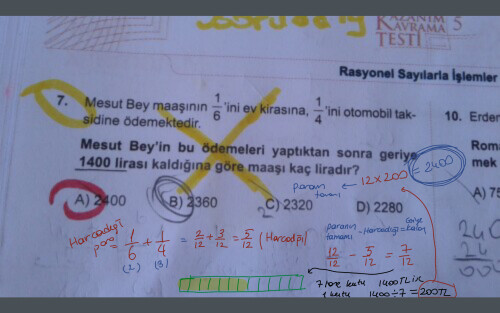 KAZANIM
KAVRAMA
TESTİ
5
Rasyonel Sayılarla İşlemler
7. Mesut Bey maaşının 1/6 'ini ev kirasına, 1/4 'ini otomobil tak-
sidine ödemektedir.
Mesut Bey'in bu ödemeleri yaptıktan sonra geriye
1400 lirası kaldığına göre maaşı kaç liradır?
A) 2400 B) 2360 C) 2320 D) 2280
10. Erden
Rom
mek
A) 7
paranın tamamı ← 12 x 200 = 2400
Harcadığı para = 1/6 + 1/4 = 2/12 + 3/12 = 5/12 (Harcadığı)
(2) (3)
paranın tamamı - Harcadığı = Geriye kalan
12/12 - 5/12 = 7/12
7 tane kutu 1400 TL ise
1 kutu 1400 ÷ 7 = 200TL
240
24
000